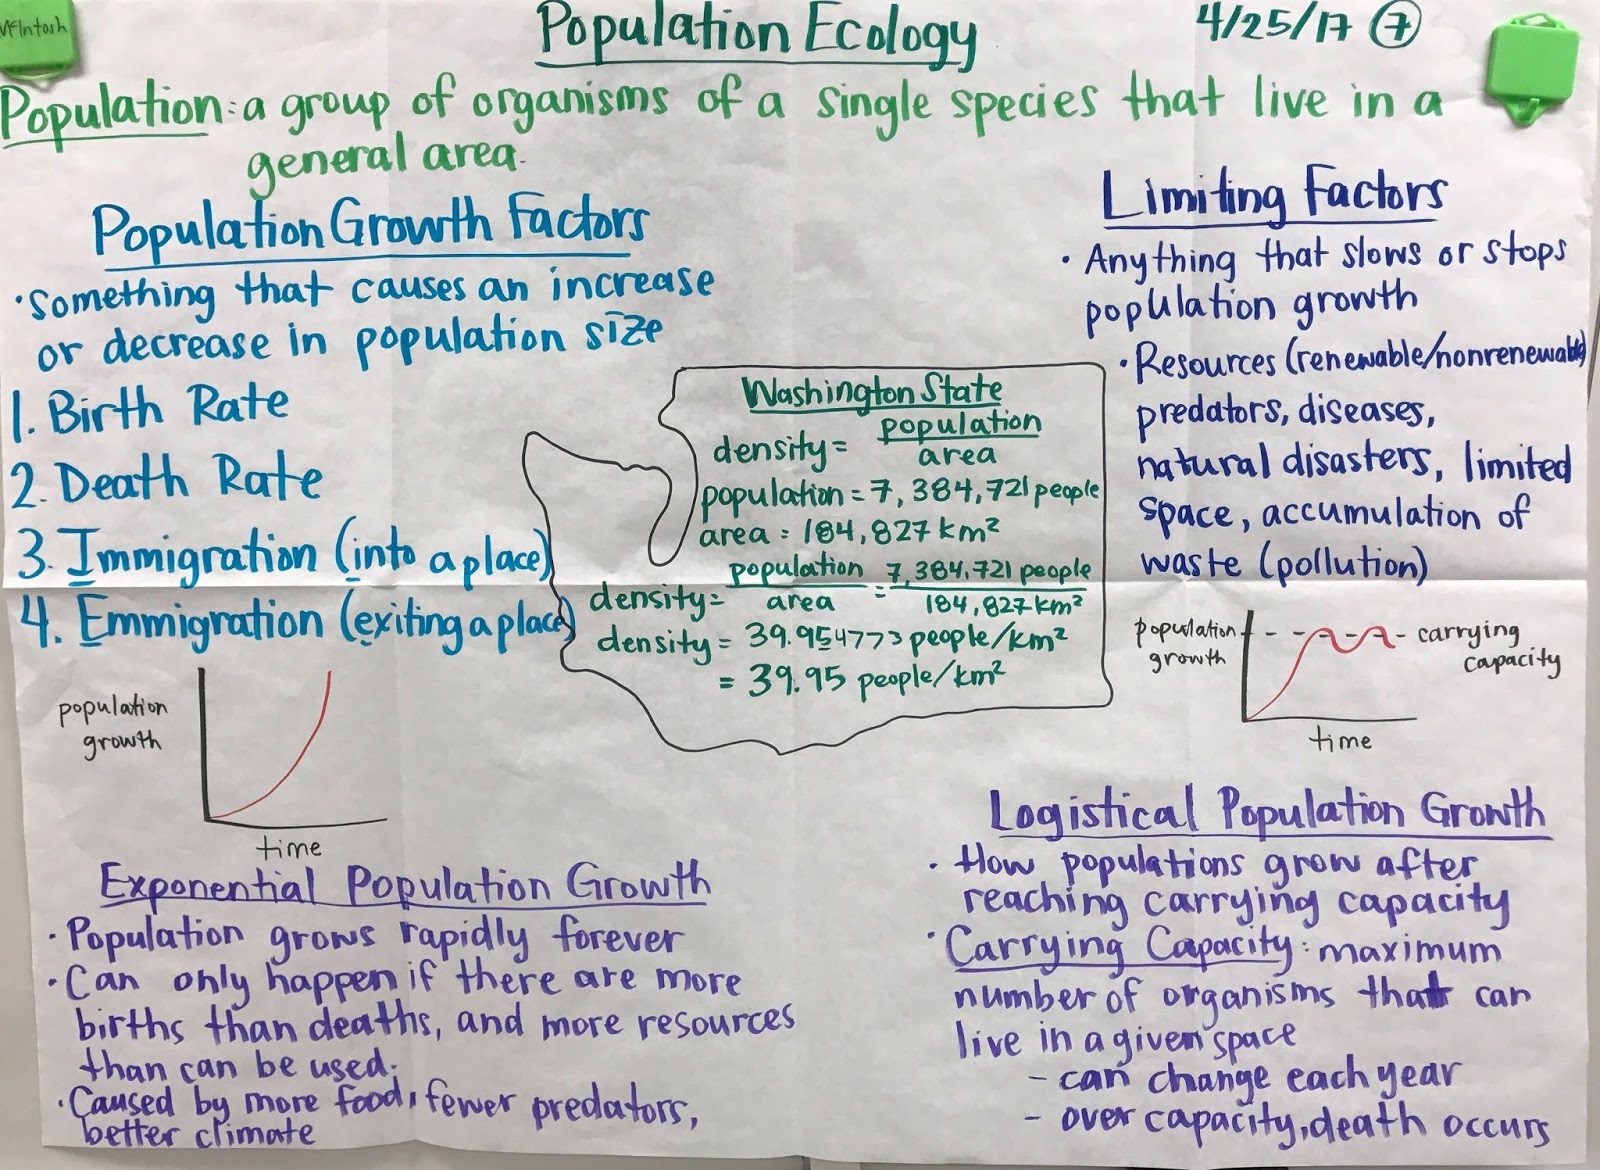 McIntosh
Population Ecology
4/25/17 7
Population: a group of organisms of a single species that live in a
general area.
Population Growth Factors
• Something that causes an increase
or decrease in population size
1. Birth Rate
2. Death Rate
3. Immigration (into a place)
4. Emmigration (exiting a place)
population
growth
time
Exponential Population Growth
• Population grows rapidly forever
• Can only happen if there are more
births than deaths, and more resources
than can be used.
• Caused by more food, fewer predators,
better climate
Washington State
density = population
area
population = 7,384,721 people
area = 184,827 km²
density = population = 7,384,721 people
area 184,827 km²
density = 39.954773 people/km²
= 39.95 people/km²
Limiting Factors
• Anything that slows or stops
population growth
• Resources (renewable/nonrenewable)
predators, diseases,
natural disasters, limited
space, accumulation of
waste (pollution)
population
growth
carrying
capacity
time
Logistical Population Growth
• How populations grow after
reaching carrying capacity
• Carrying Capacity: maximum
number of organisms that can
live in a given space
- can change each year
- over capacity, death occurs